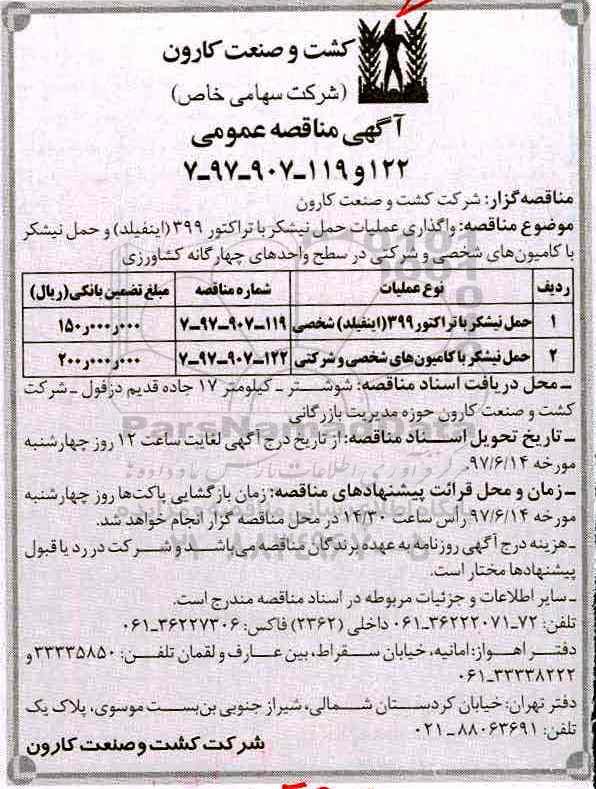 کشت و صنعت کارون
(شرکت سهامی خاص)
آگهی مناقصه عمومی
۷-۹۷-۹۰۷-۱۱۹ و ۱۲۲
مناقصه‌گزار: شرکت کشت و صنعت کارون
موضوع مناقصه: واگذاری عملیات حمل نیشکر با تراکتور ۳۹۹ (اینفیلد) و حمل نیشکر
با کامیون‌های شخصی و شرکتی در سطح واحدهای چهارگانه کشاورزی
ردیف نوع عملیات شماره مناقصه مبلغ تضمین بانکی (ریال)
۱ حمل نیشکر با تراکتور ۳۹۹ (اینفیلد) شخصی ۷-۹۷-۹۰۷-۱۱۹ ۱۵۰ر۰۰۰ر۰۰۰
۲ حمل نیشکر با کامیون‌های شخصی و شرکتی ۷-۹۷-۹۰۷-۱۲۲ ۲۰۰ر۰۰۰ر۰۰۰
ـ محل دریافت اسناد مناقصه: شوشتر ـ کیلومتر ۱۷ جاده قدیم دزفول ـ شرکت
کشت و صنعت کارون حوزه مدیریت بازرگانی
ـ تاریخ تحویل اسناد مناقصه: از تاریخ درج آگهی لغایت ساعت ۱۲ روز چهارشنبه
مورخه ۹۷/۶/۱۴.
ـ زمان و محل قرائت پیشنهادهای مناقصه: زمان بازگشایی پاکت‌ها روز چهارشنبه
مورخه ۹۷/۶/۱۴ رأس ساعت ۱۲/۳۰ در محل مناقصه گزار انجام خواهد شد.
ـ هزینه درج آگهی روزنامه به عهده برندگان مناقصه می‌باشد و شرکت در رد یا قبول
پیشنهادها مختار است.
ـ سایر اطلاعات و جزئیات مربوطه در اسناد مناقصه مندرج است.
تلفن: ۷۲-۳۶۲۲۲۰۷۱-۰۶۱ داخلی (۲۳۶۲) فاکس: ۳۶۲۲۷۳۰۶-۰۶۱
دفتر اهواز: امانیه، خیابان سقراط، بین عارف و لقمان تلفن: ۳۳۳۳۵۸۵۰ و
۳۳۳۳۸۲۲۲-۰۶۱
دفتر تهران: خیابان کردستان شمالی، شیراز جنوبی بن‌بست موسوی، پلاک یک
تلفن: ۸۸۰۶۳۶۹۱-۰۲۱
شرکت کشت و صنعت کارون
ParsNamadData